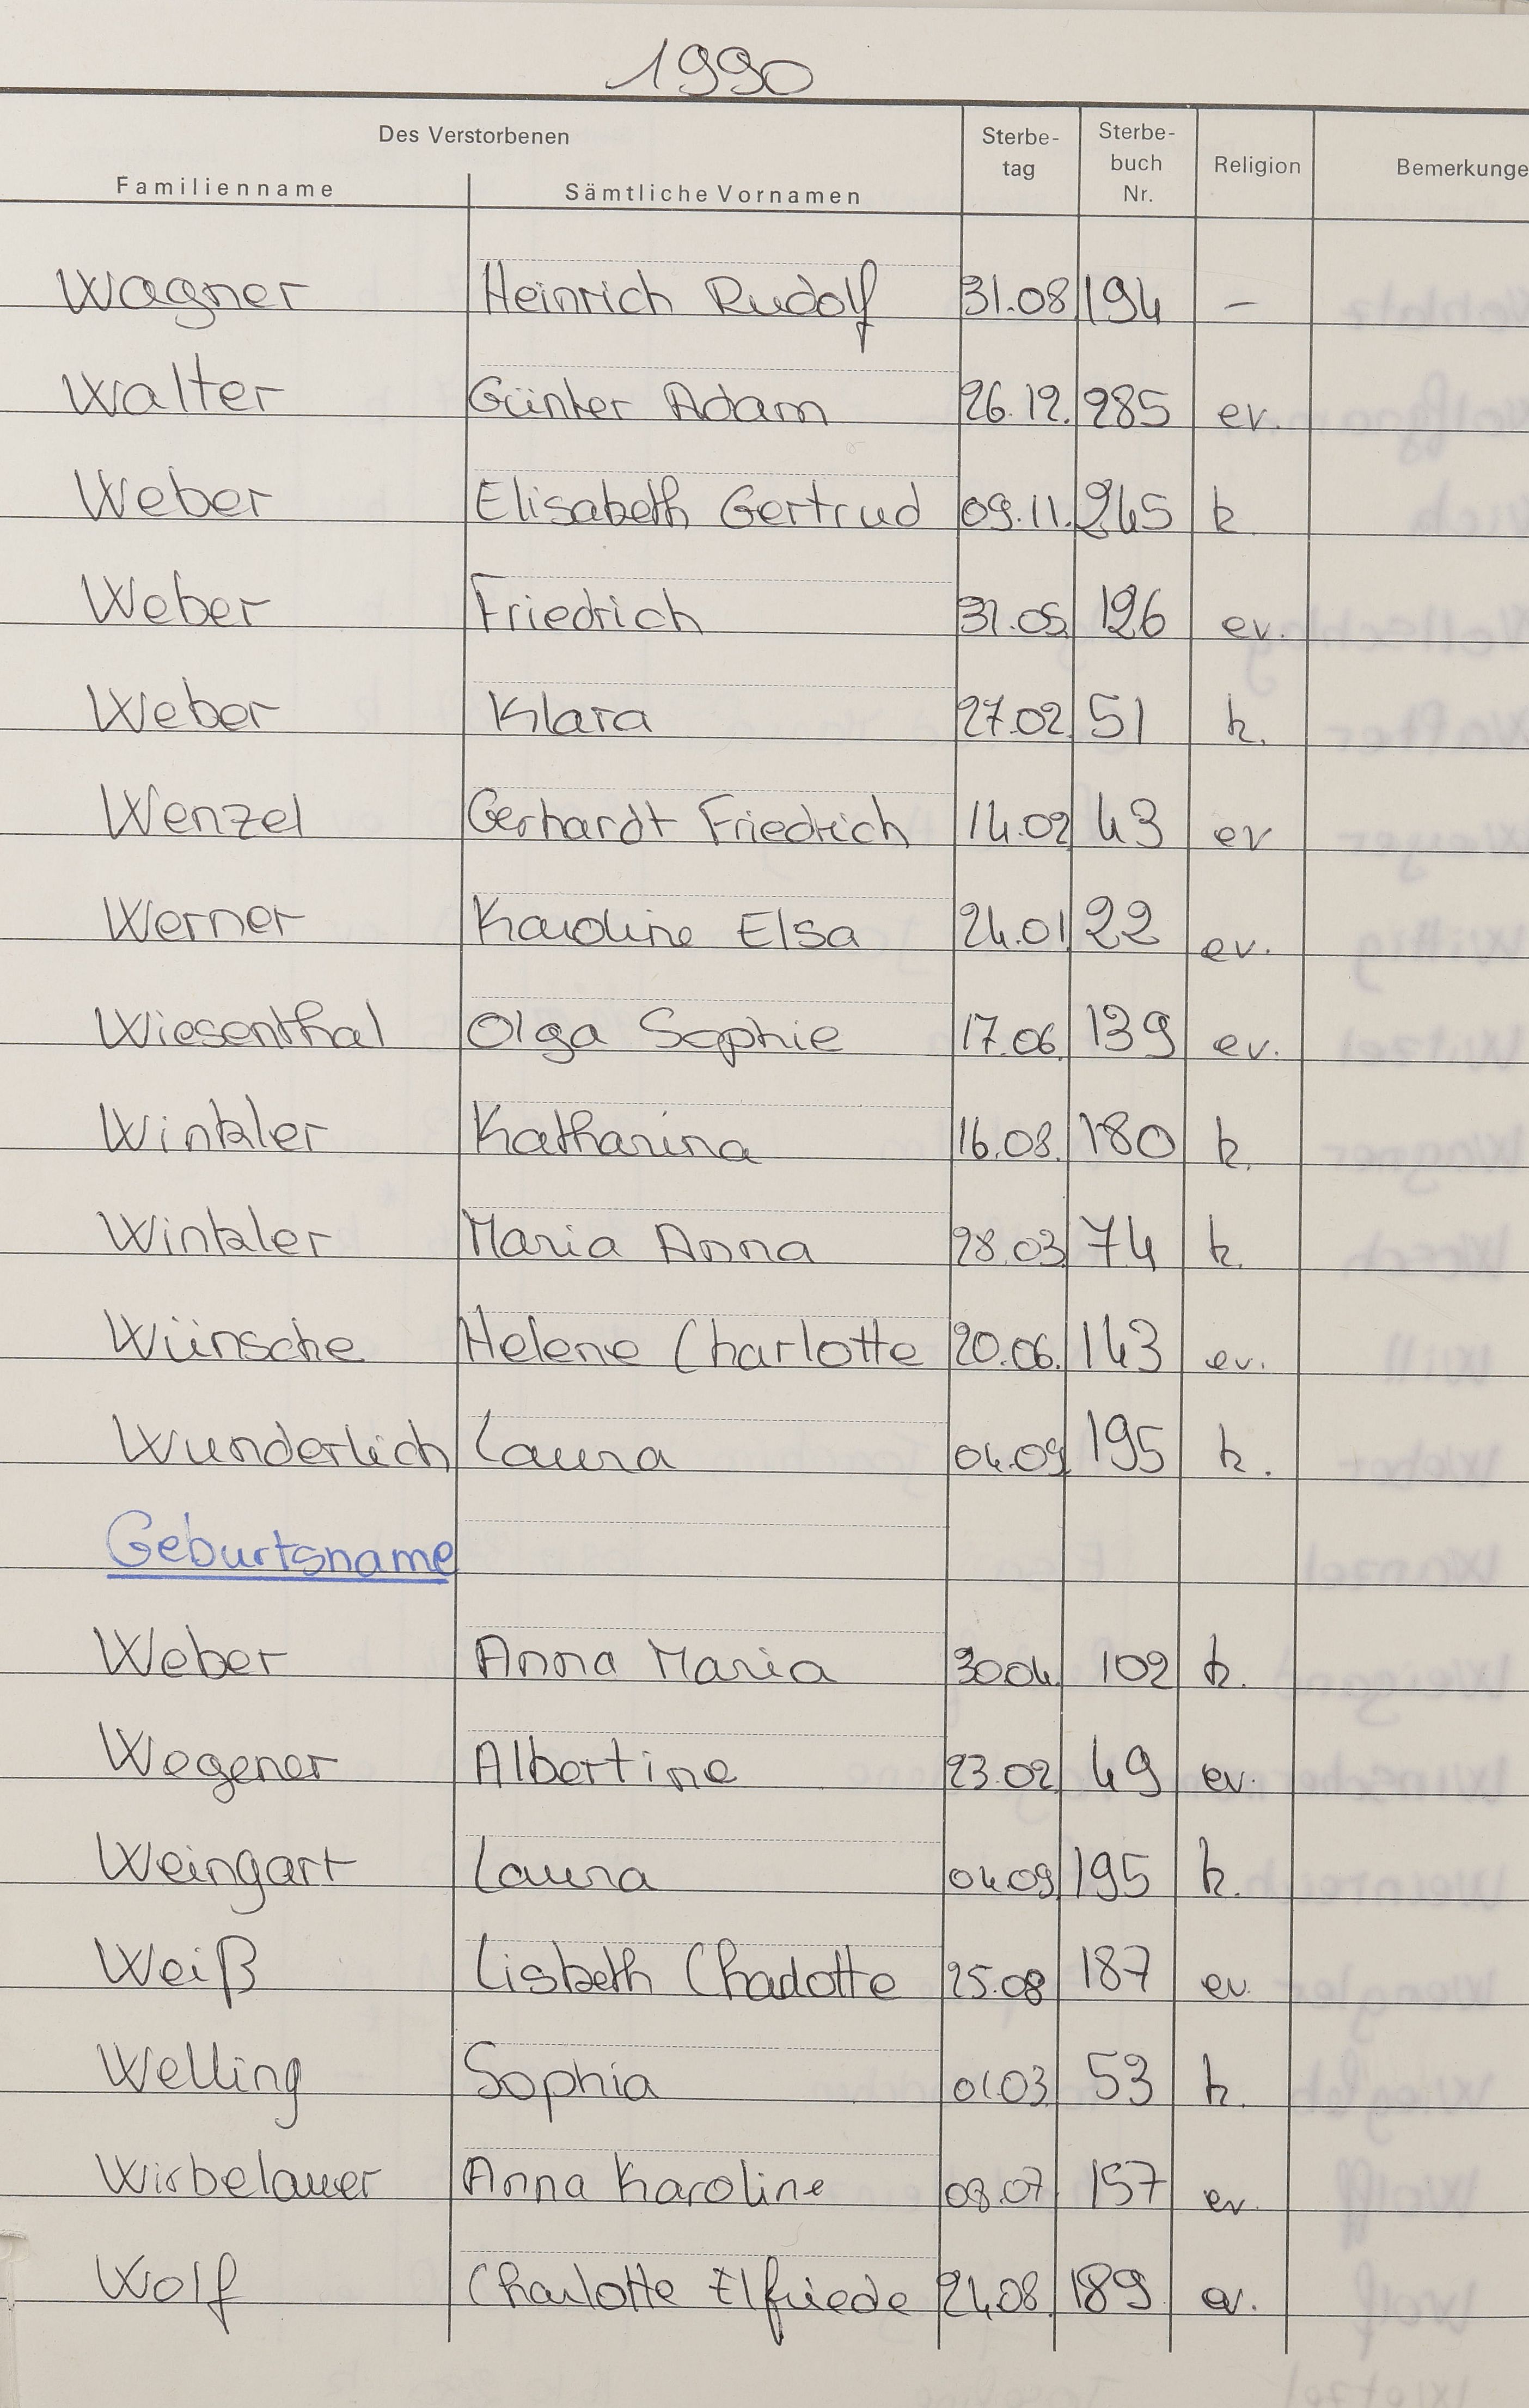 1990
Des Verstorbenen
Familienname Sämtliche Vornamen Sterbe-tag Sterbe-buch Nr. Religion Bemerkunge
Wagner Heinrich Rudolf 31.08. 194 –
Walter Günter Adam 26.12. 285 ev.
Weber Elisabeth Gertrud 09.11. 245 k
Weber Friedrich 31.05. 126 ev.
Weber Klara 27.02. 51 k.
Wenzel Gerhardt Friedrich 14.02 43 ev
Werner Karoline Elsa 24.01 22 ev.
Wiesenthal Olga Sophie 17.06. 139 ev.
Winkler Katharina 16.08. 180 k.
Winkler Maria Anna 28.03. 74 k.
Wünsche Helene Charlotte 20.06. 143 ev.
Wunderlich Laura 04.09. 195 k.
Geburtsname
Weber Anna Maria 30.04. 102 k.
Wegener Albertine 23.02. 49 ev.
Weingart Laura 04.09. 195 k.
Weiß Lisbeth Charlotte 25.08 187 ev.
Welling Sophia 01.03. 53 k.
Wirbelauer Anna Karoline 157 ev.
Wolf Charlotte Elfriede 24.08. 189 ev.